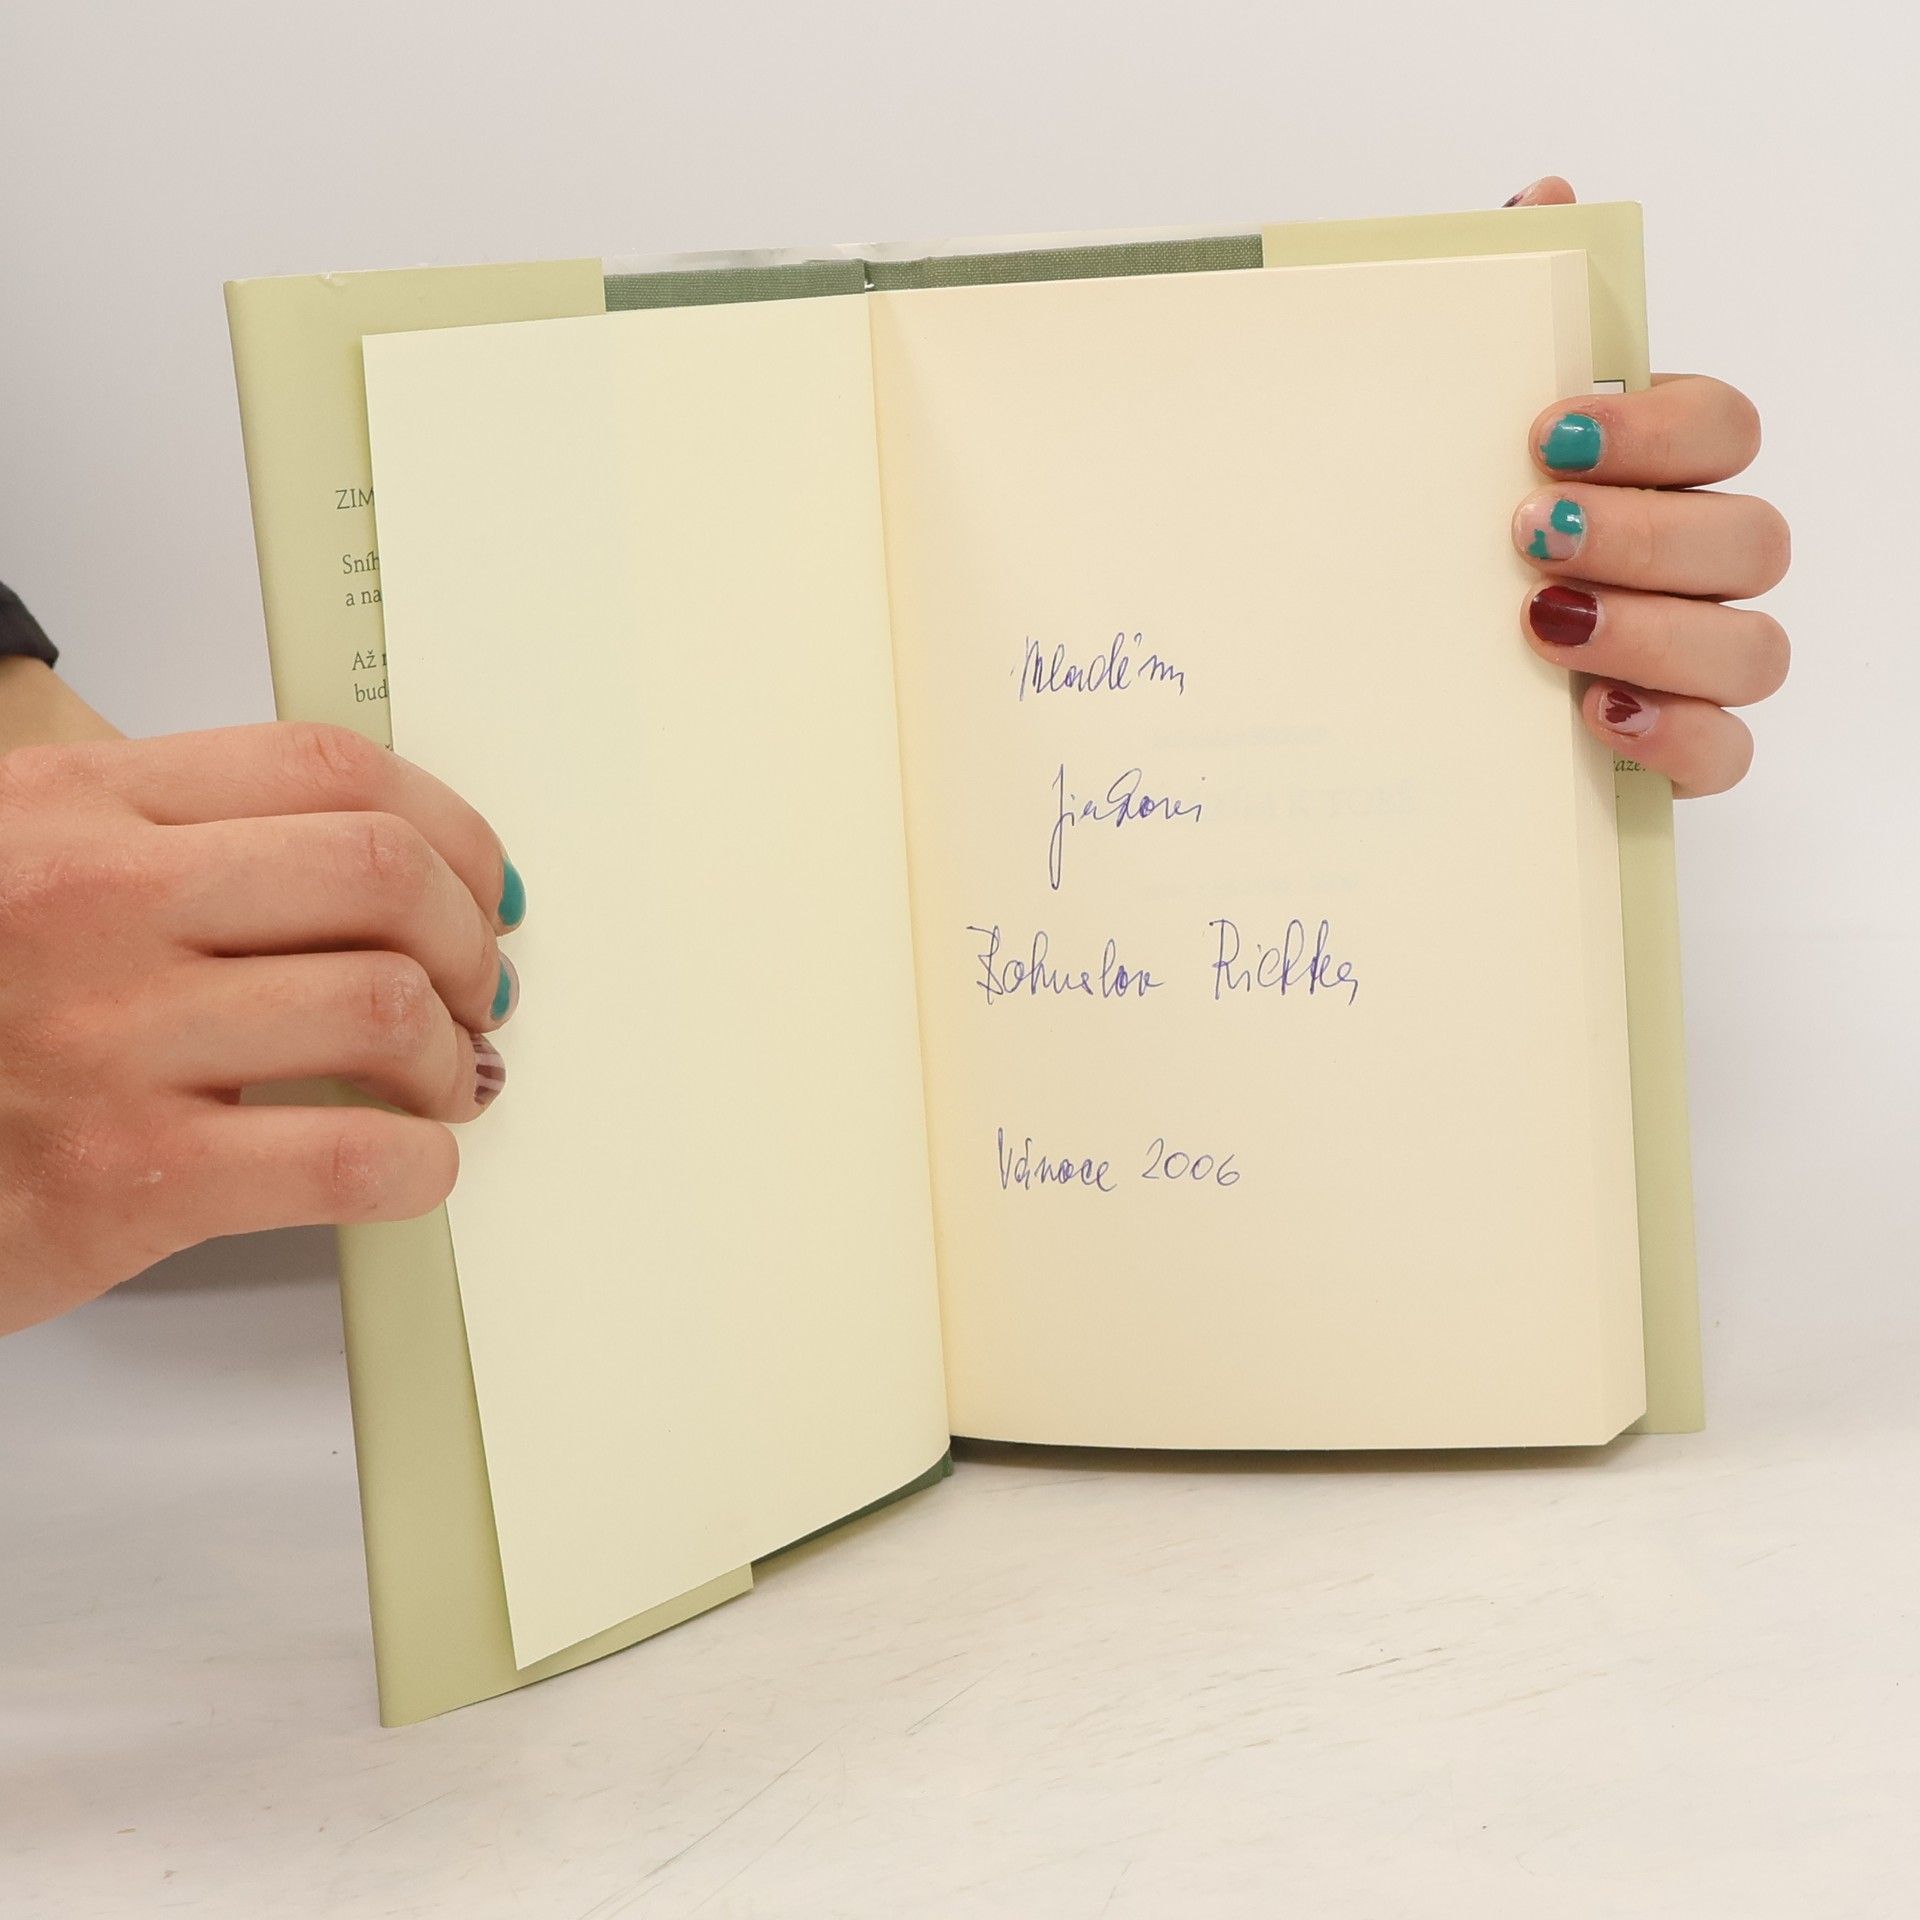 ZIM
Sníh
a na
Až
bud
Mladému
Jirkovi
Bohuslav Richter
Vánoce 2006